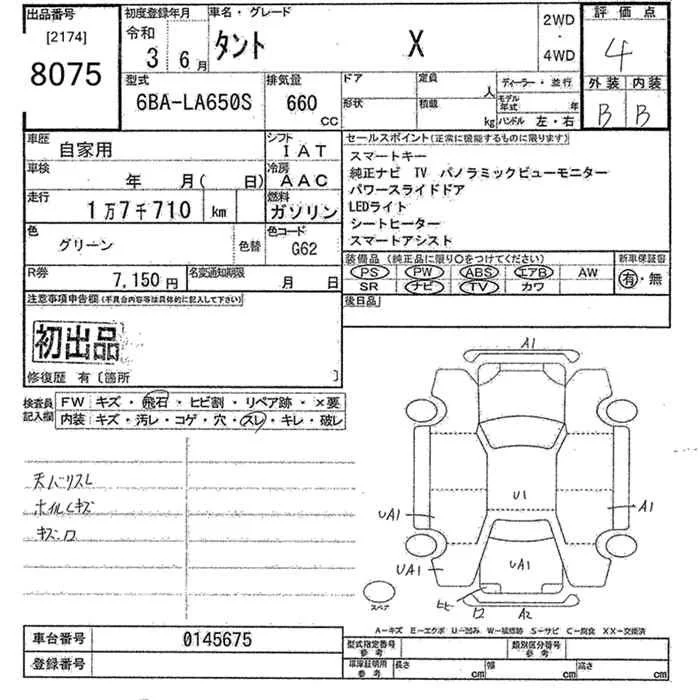 出品番号 初度登録年月 車名・グレード 2WD・4WD 評価点
[2174] 令和 3 6月 タント X 4
8075
型式 排気量 ドア 定員 人 ディーラー・並行 外装 内装
6BA-LA650S 660 cc 形状 積載 kg モデル年式 年 ハンドル 左・右 B B
車歴 自家用 シフト IAT セールスポイント(正常に機能するものに限ります)
車検 年 月( 日) 冷房 AAC スマートキー
純正ナビ TV パノラミックビューモニター
走行 1万7千710 km 燃料 ガソリン パワースライドドア
LEDライト
色 グリーン 色替 色コード G62 シートヒーター
スマートアシスト
R券 7,150円 名変通知期限 月 日 装備品(純正品に限り○をつけてください) 新車保証書
PS PW ABS エアB AW 有・無
SR ナビ TV カワ
注意事項申告欄(不具合内容等は具体的に記入して下さい) 後日品
初出品
修復歴 有〔箇所 〕
検査員記入欄 FW キズ・飛石・ヒビ割・リペア跡・×要
内装 キズ・汚レ・コゲ・穴・スレ・キレ・破レ
A1
天バリスレ
ホイルキズ
U1
UA1 A1
UA1 UA1
スペア
A2
A-キズ E-エクボ U-凹み W-補修跡 S-サビ C-腐食 XX-交換済
車台番号 0145675 型式指定番号 参考 類別区分番号 参考
登録番号 車庫証明用 参考 長さ cm 幅 cm 高さ cm